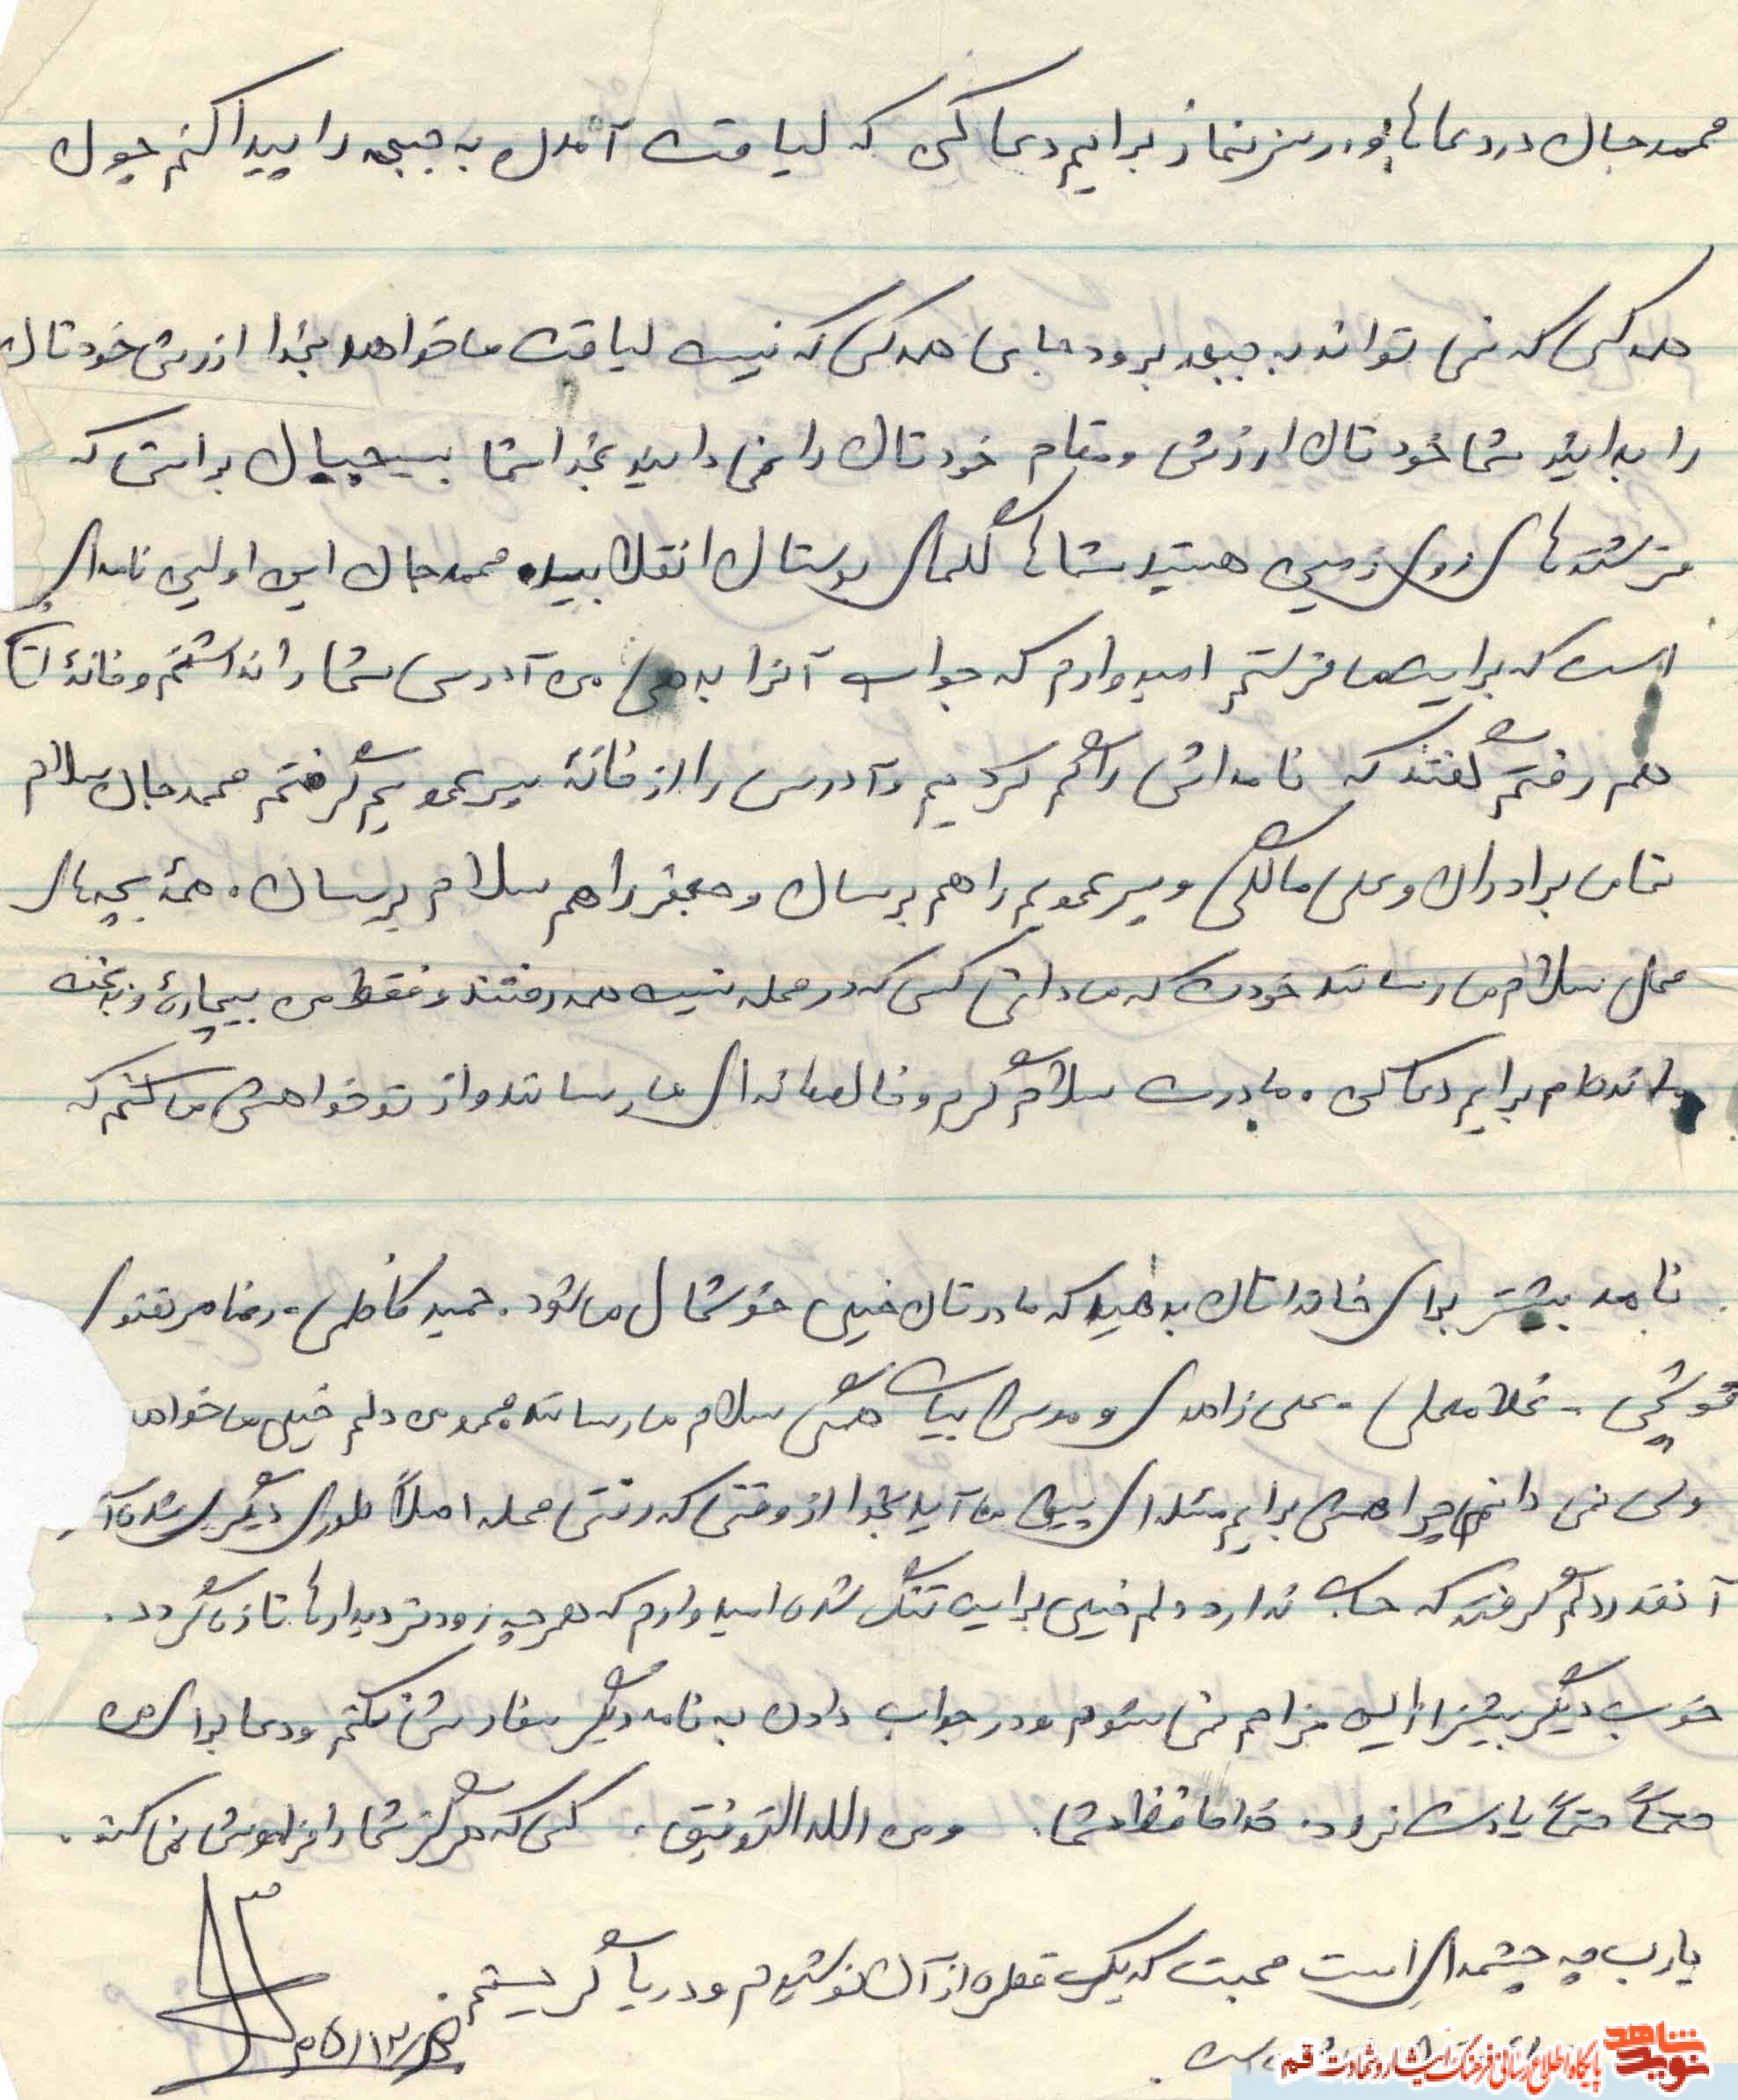 محمد جان در دعاهای و در سر نماز برایم دعا کن که لیاقت آمدن به جبهه را پیدا کنم چون
هر کس که نمی تواند به جبهه برود جای هر کس که نیست لیاقت می خواهد بخدا ارزش خودتان
را بدانید شما خودتان ارزش و مقام خودتان را نمی دانید بخدا شما بسیجیان براستی که
فرشته های روی زمین هستید شماها گلهای بوستان انقلابید. محمد جان این اولین نامه ای
است که برایت می فرستم امیدوارم که جواب آنرا بدهی من آدرس شما را نداشتم و خانۀ شما
هم رفتم گفتند که نامه اش را گم کردیم و آدرس را از خانۀ پسر عمویم گرفتم محمد جان سلام
تمامی برادران و علی مالکی و پسر عمویم را هم برسان و جعفر را هم سلام برسان. همۀ بچه های
محل سلام می رسانند خودت که می دانی کسی که در محله نیست همه رفتند و فقط من بیچاره و بدبخت
مانده ام برایم دعا کن. مادرت سلام گرم و خالصانه ای می رساند و از تو خواهش می کنم که
نامه بیشتر برای خانه اتان بدهید که مادرتان خیلی خوشحال می شود. حمید کاظمی - رضا مرتضوی
قوشچی - غلامعلی - علی زاهدی و مدرسی بیات همگی سلام می رسانند محمد من دلم خیلی می خواهد
ولی نمی دانم چرا همش برایم مسئله ای پیش می آید بخدا از وقتی که رفتی محله اصلاً طوری دیگری شده
آنقدر دلم گرفته که حساب ندارد دلم خیلی برایت تنگ شده امیدوارم که هر چه زودتر دیدارها تازه گردد.
خوب دیگر بیشتر از این مزاحم نمی شوم و در جواب دادن به نامه دیگر سفارش نکنم و دعا برای من
حتماً حتماً یادت نرود. خداحافظ شما. و من الله التوفیق. کسی که هرگز شما را فراموش نمی کند.
یارب چه چشمه ای است محبت که یک قطره از آن نوشیدم و دریا گریستم.
شاهد نوید پایگاه اطلاع رسانی فرهنگ ایثار و شهادت قم